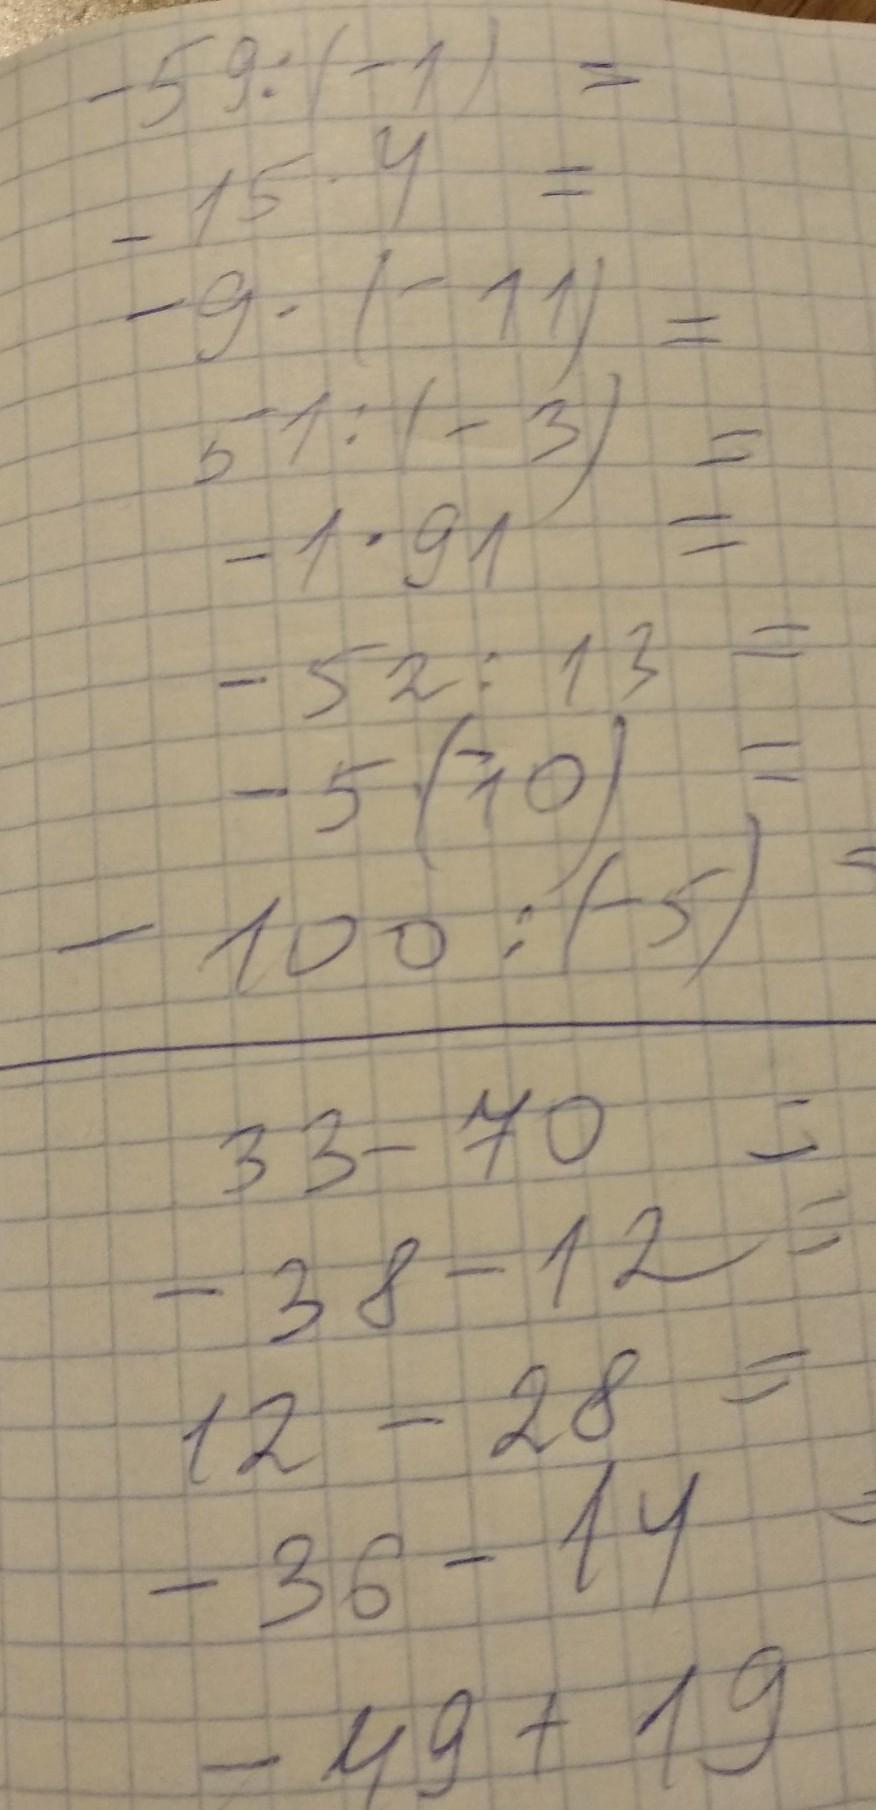 -59:(-1) =
-15·4 =
-9·(-11) =
51:(-3) =
-1·91 =
-52:13 =
-5·(-10) =
-100:(-5) =
33-70 =
-38-12 =
12-28 =
-36-14 =
-49+19